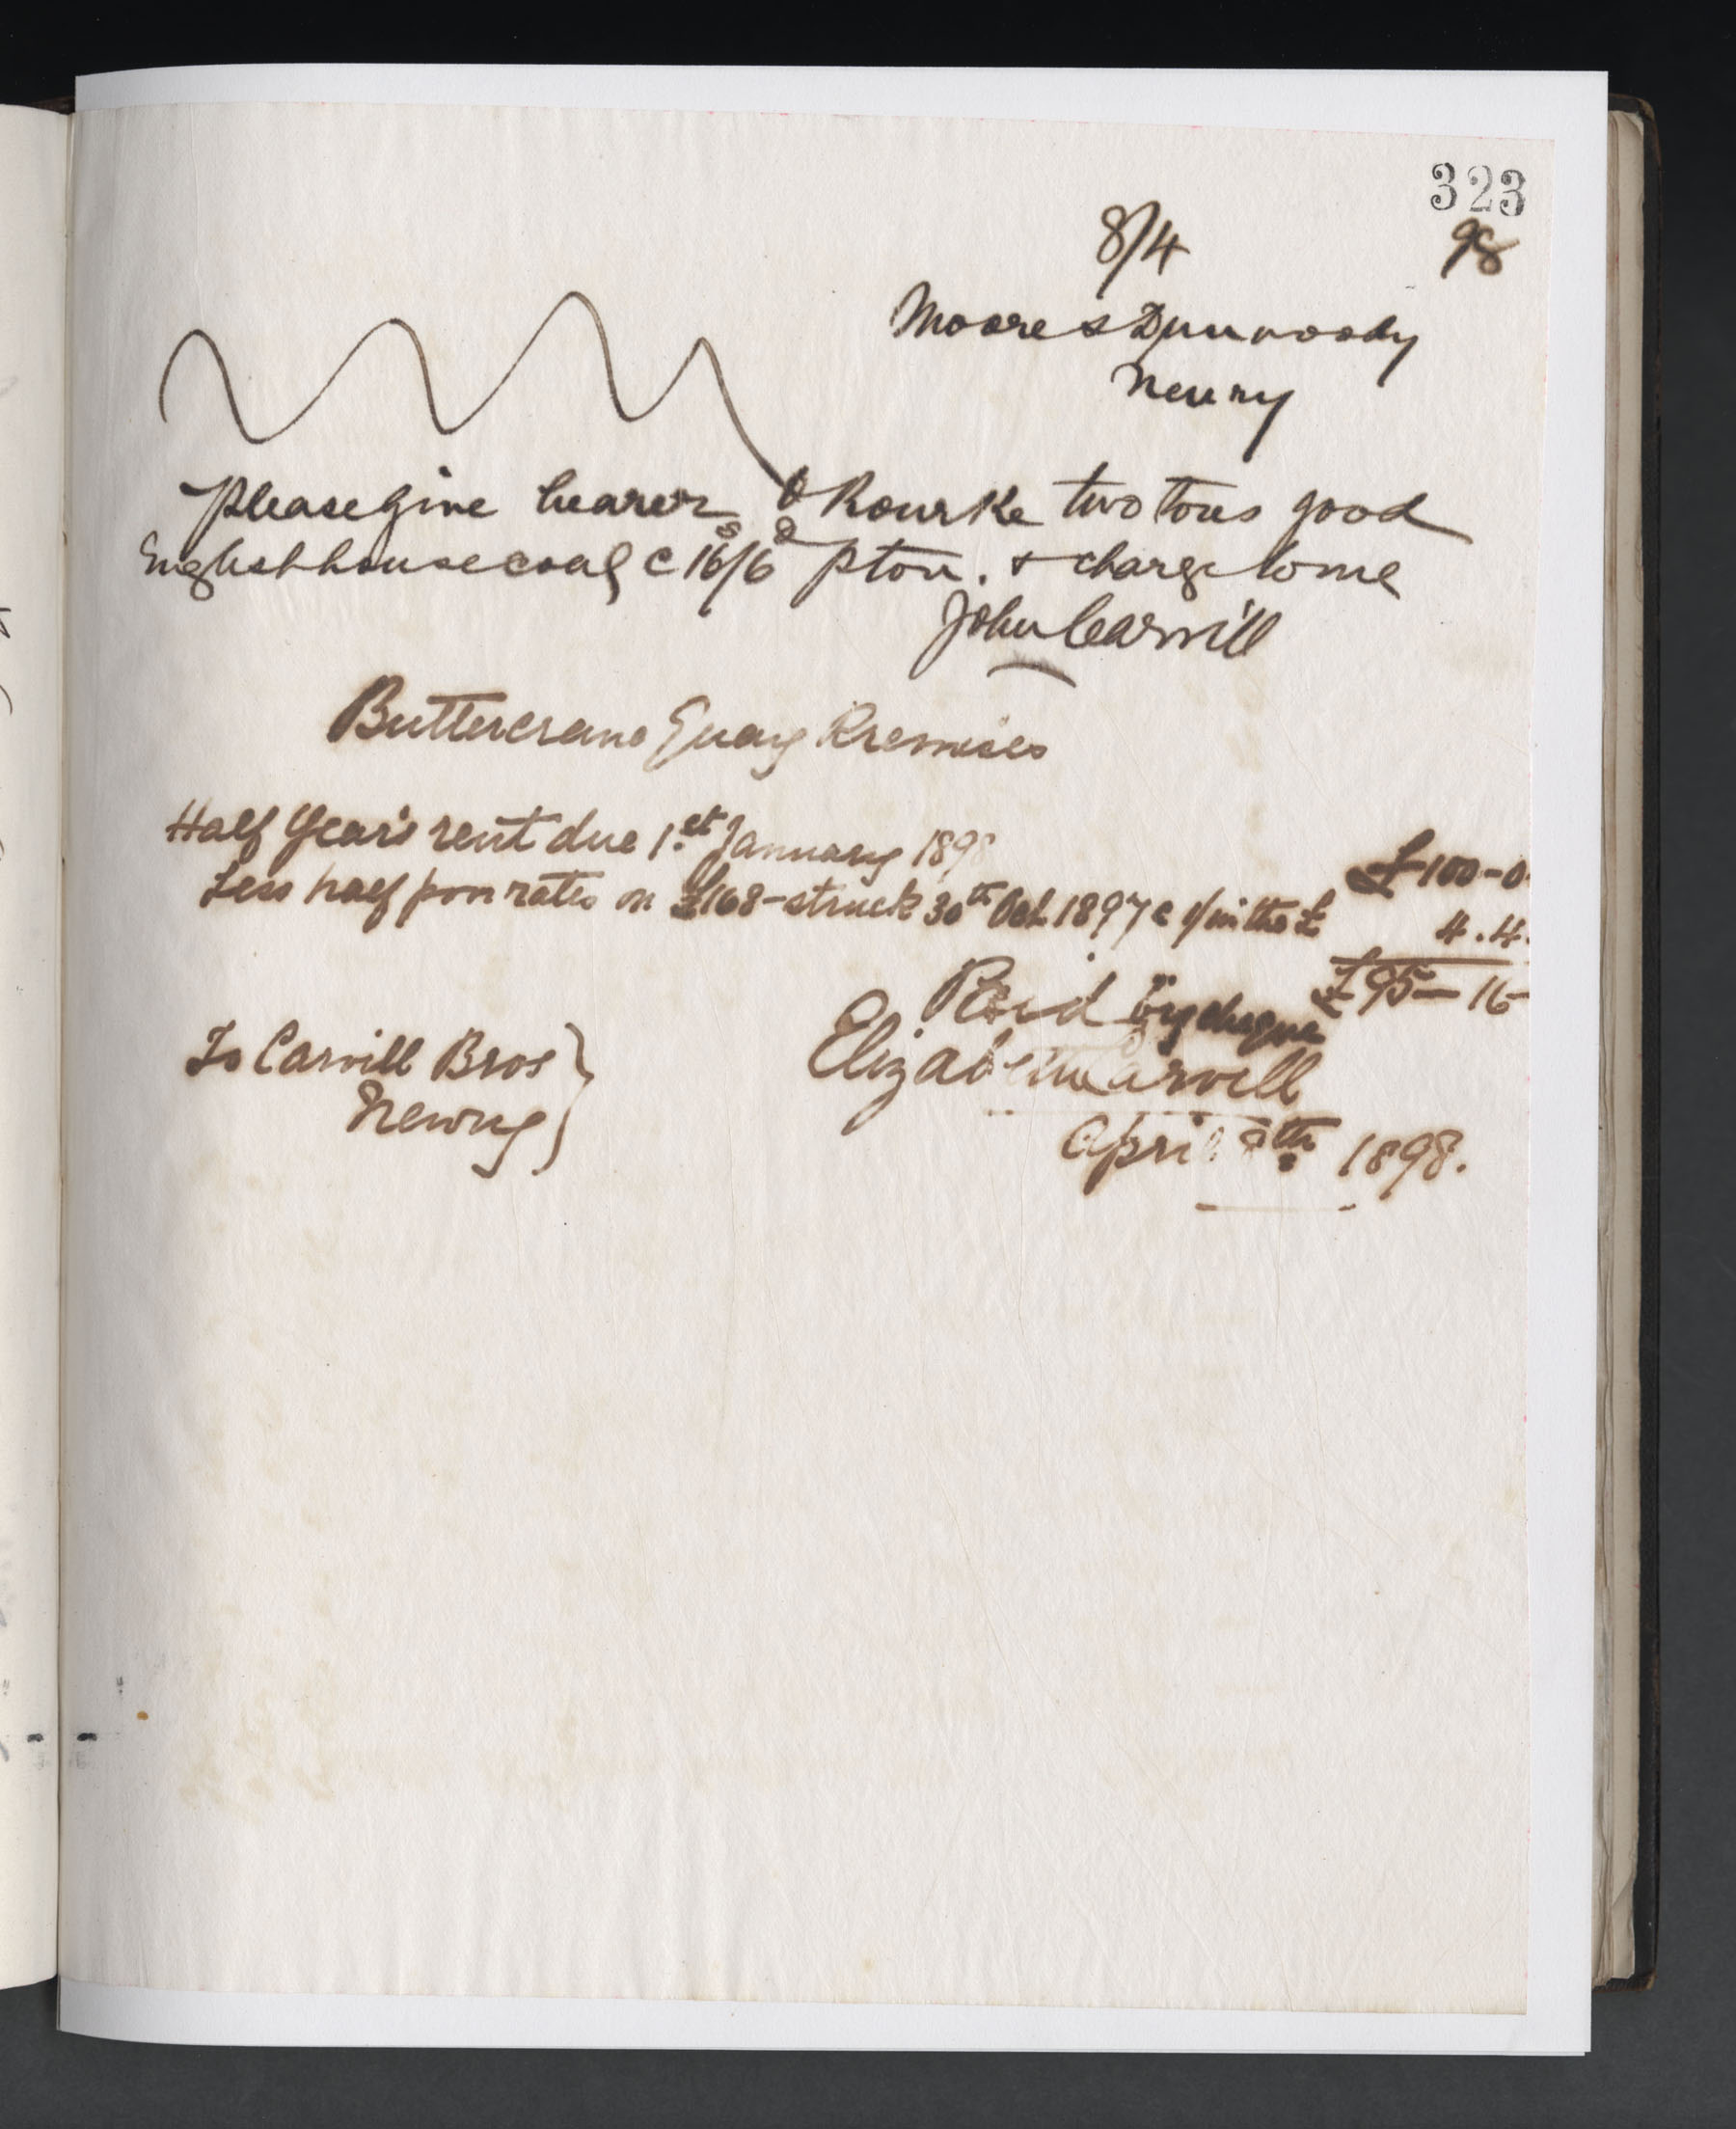 323
8/4 98
Moore & Dunwoody
Newry
Please give bearer O Rourke two tons good
English house coal @ 16s/6d p ton. & charge to me
John Carvill
Buttercrane Quay Premises
Half Year's rent due 1st January 1898 £100-0
Less half poor rates on £168- struck 30th Oct 1897 @ 1/ in the £ 4.4.
£95-16-
Paid by cheque
Elizabeth Carvill
To Carvill Bros
Newry
April 8th 1898.